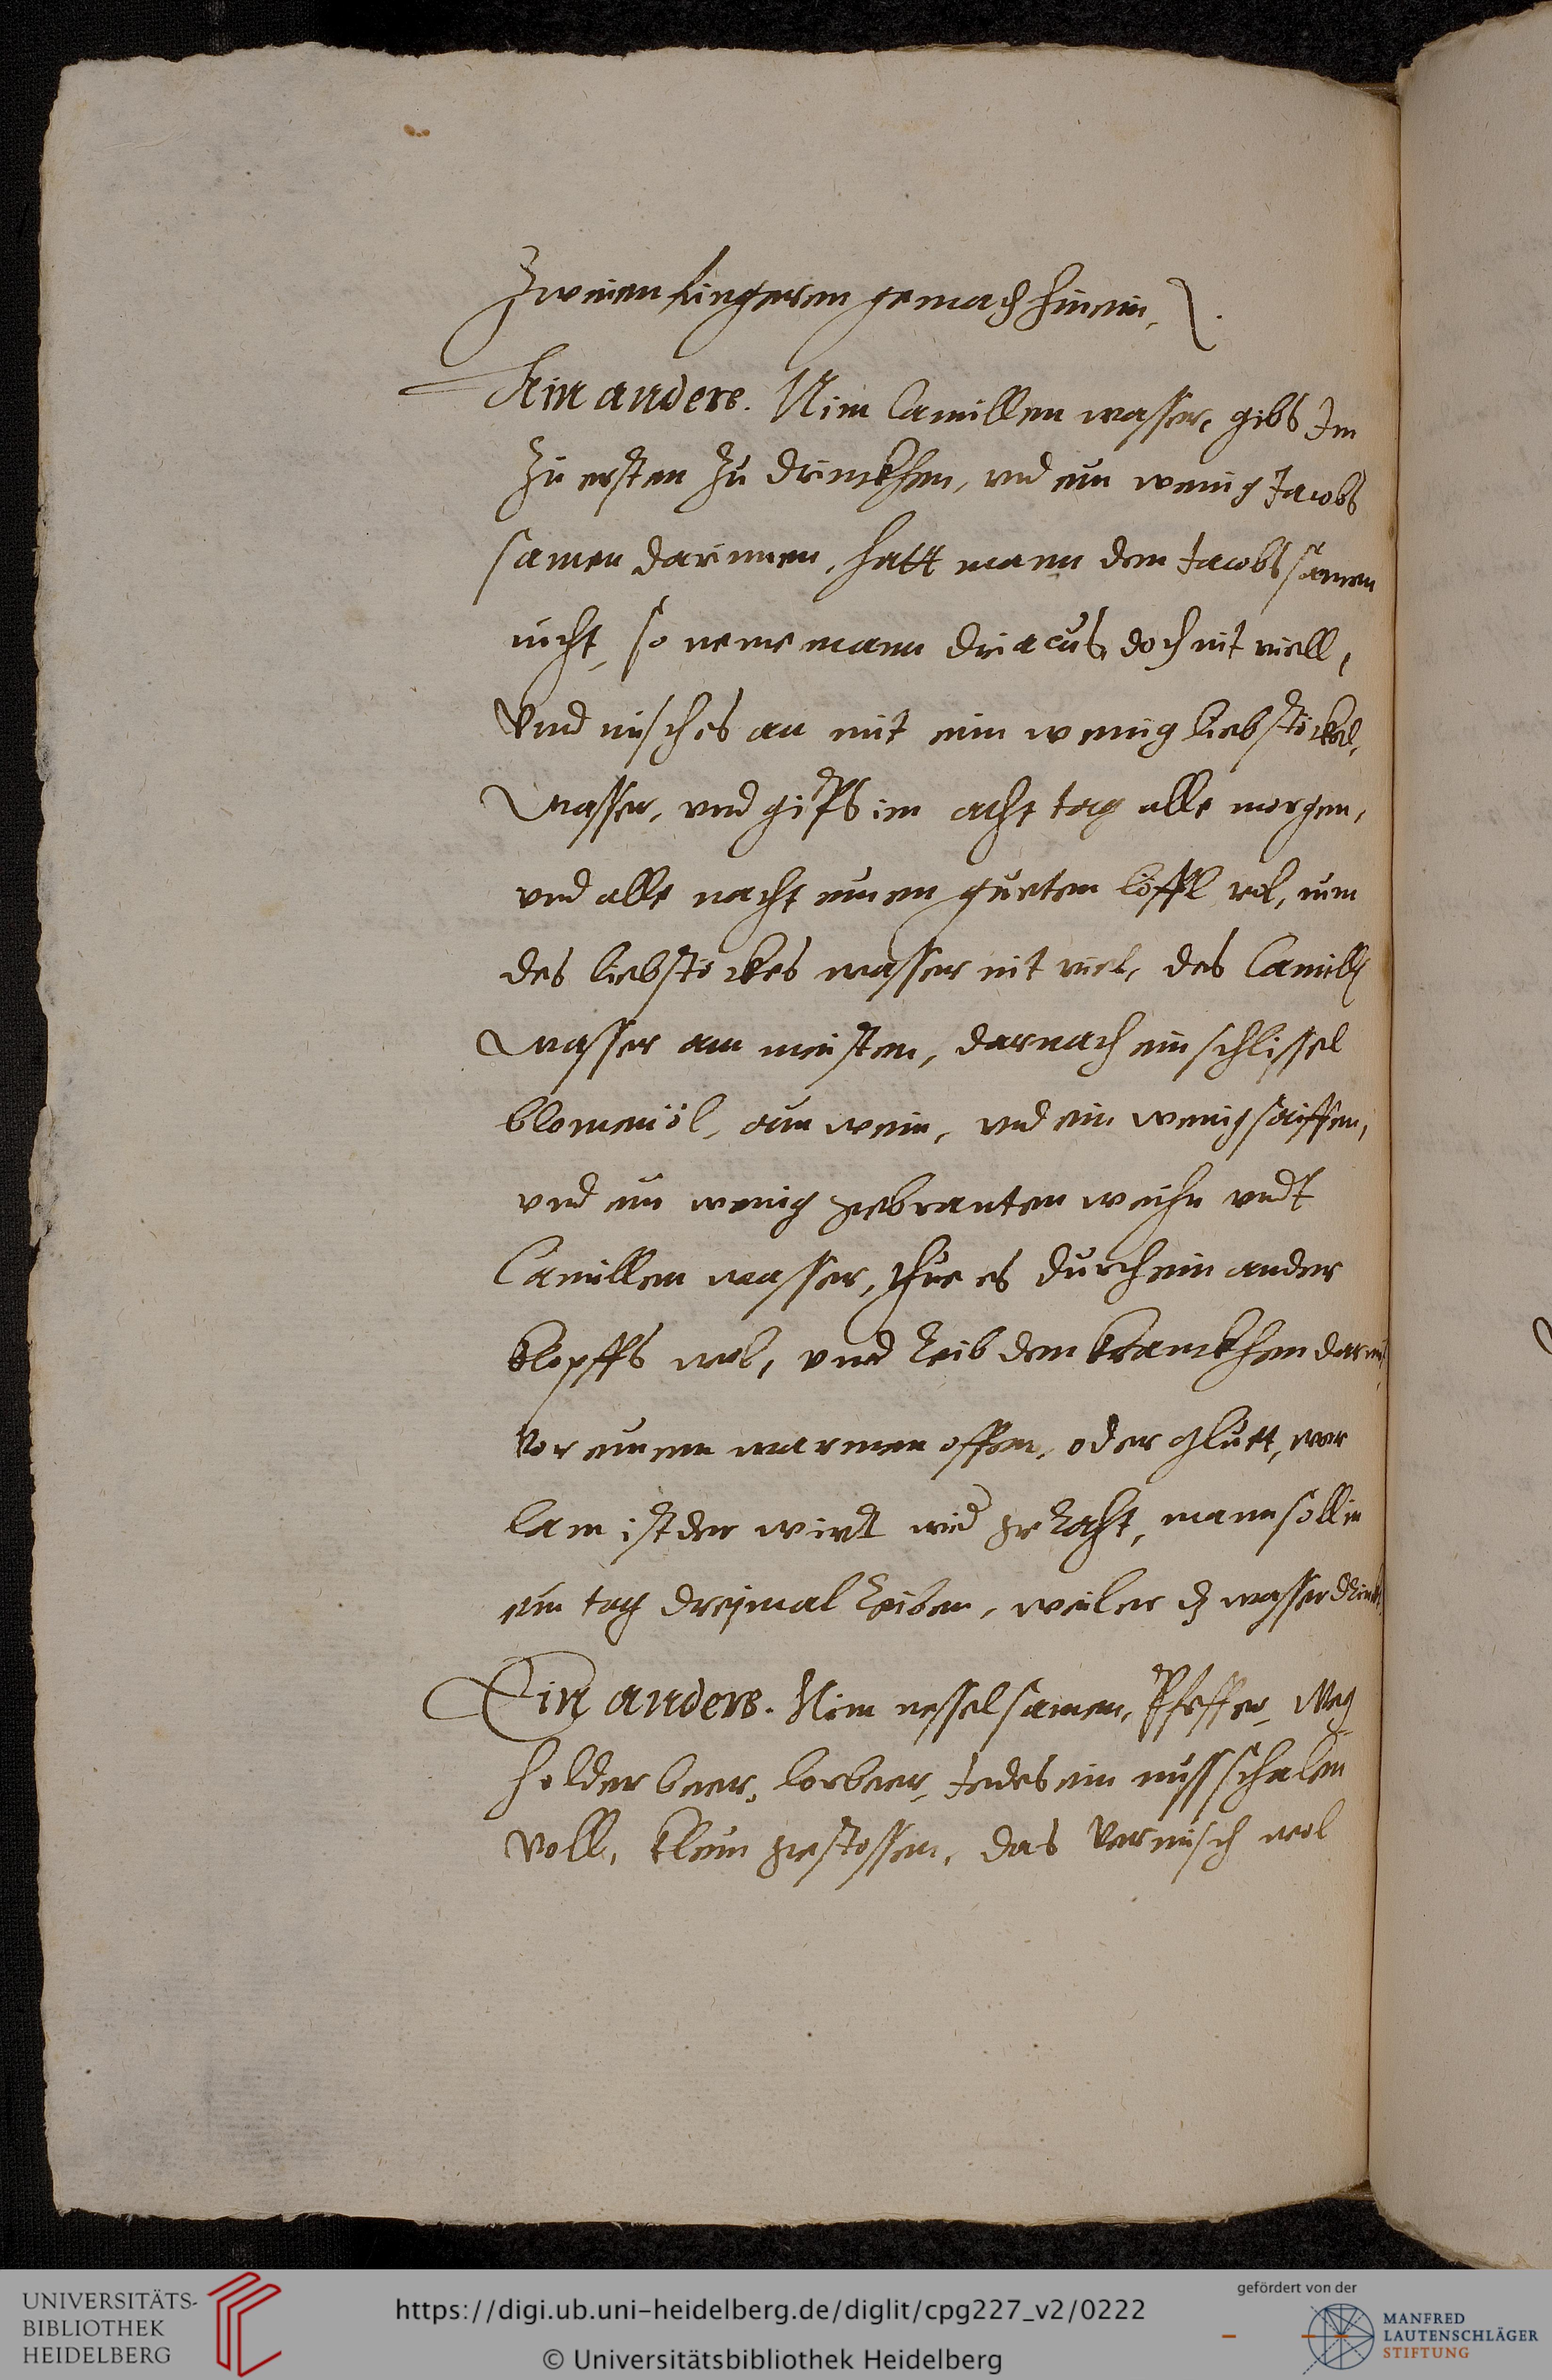 Zweien fingeren gemach hinein.
Ein anders. Nim Camillen wasser, gibs Im
zu ersten zu drinckhen, vnd ein wenig Jacobs
samen darinnen, hatt mann den Jacobs samen
nicht, so neme mann driacus, doch nit viell,
Vnd misch es an mit eim wenig liebstöckel
Wasser, vnd gibs im acht tag alle morgen,
vnd alle nacht einen gueten löffl vol, nim
des liebstöckes wasser nit viel, des Camill
Wasser am meisten, darnach ein schlissel
blomenöl, ein wein, vnd ein wenig saiffen,
vnd ein wenig gebranten weihn vndt
Camillen wasser, thue es durch ein ander
klopffs wol, vnd reib den kranckhen darmit
Vor einem warmen offen, oder gluett, wer
lam ist der wirdt wid gerecht, mann soll in
ein tag dreimal reiben, weil er dz wasser drinckt.
Ein anders. Nim nessel samen, Pfeffer, Weg
holder beer, lorbeer, Jedes ein nussschalen
Voll, klein gestossen, das Vermisch wol
UNIVERSITÄTS-
BIBLIOTHEK
HEIDELBERG
https://digi.ub.uni-heidelberg.de/diglit/cpg227_v2/0222
© Universitätsbibliothek Heidelberg
gefördert von der
MANFRED
LAUTENSCHLÄGER
STIFTUNG